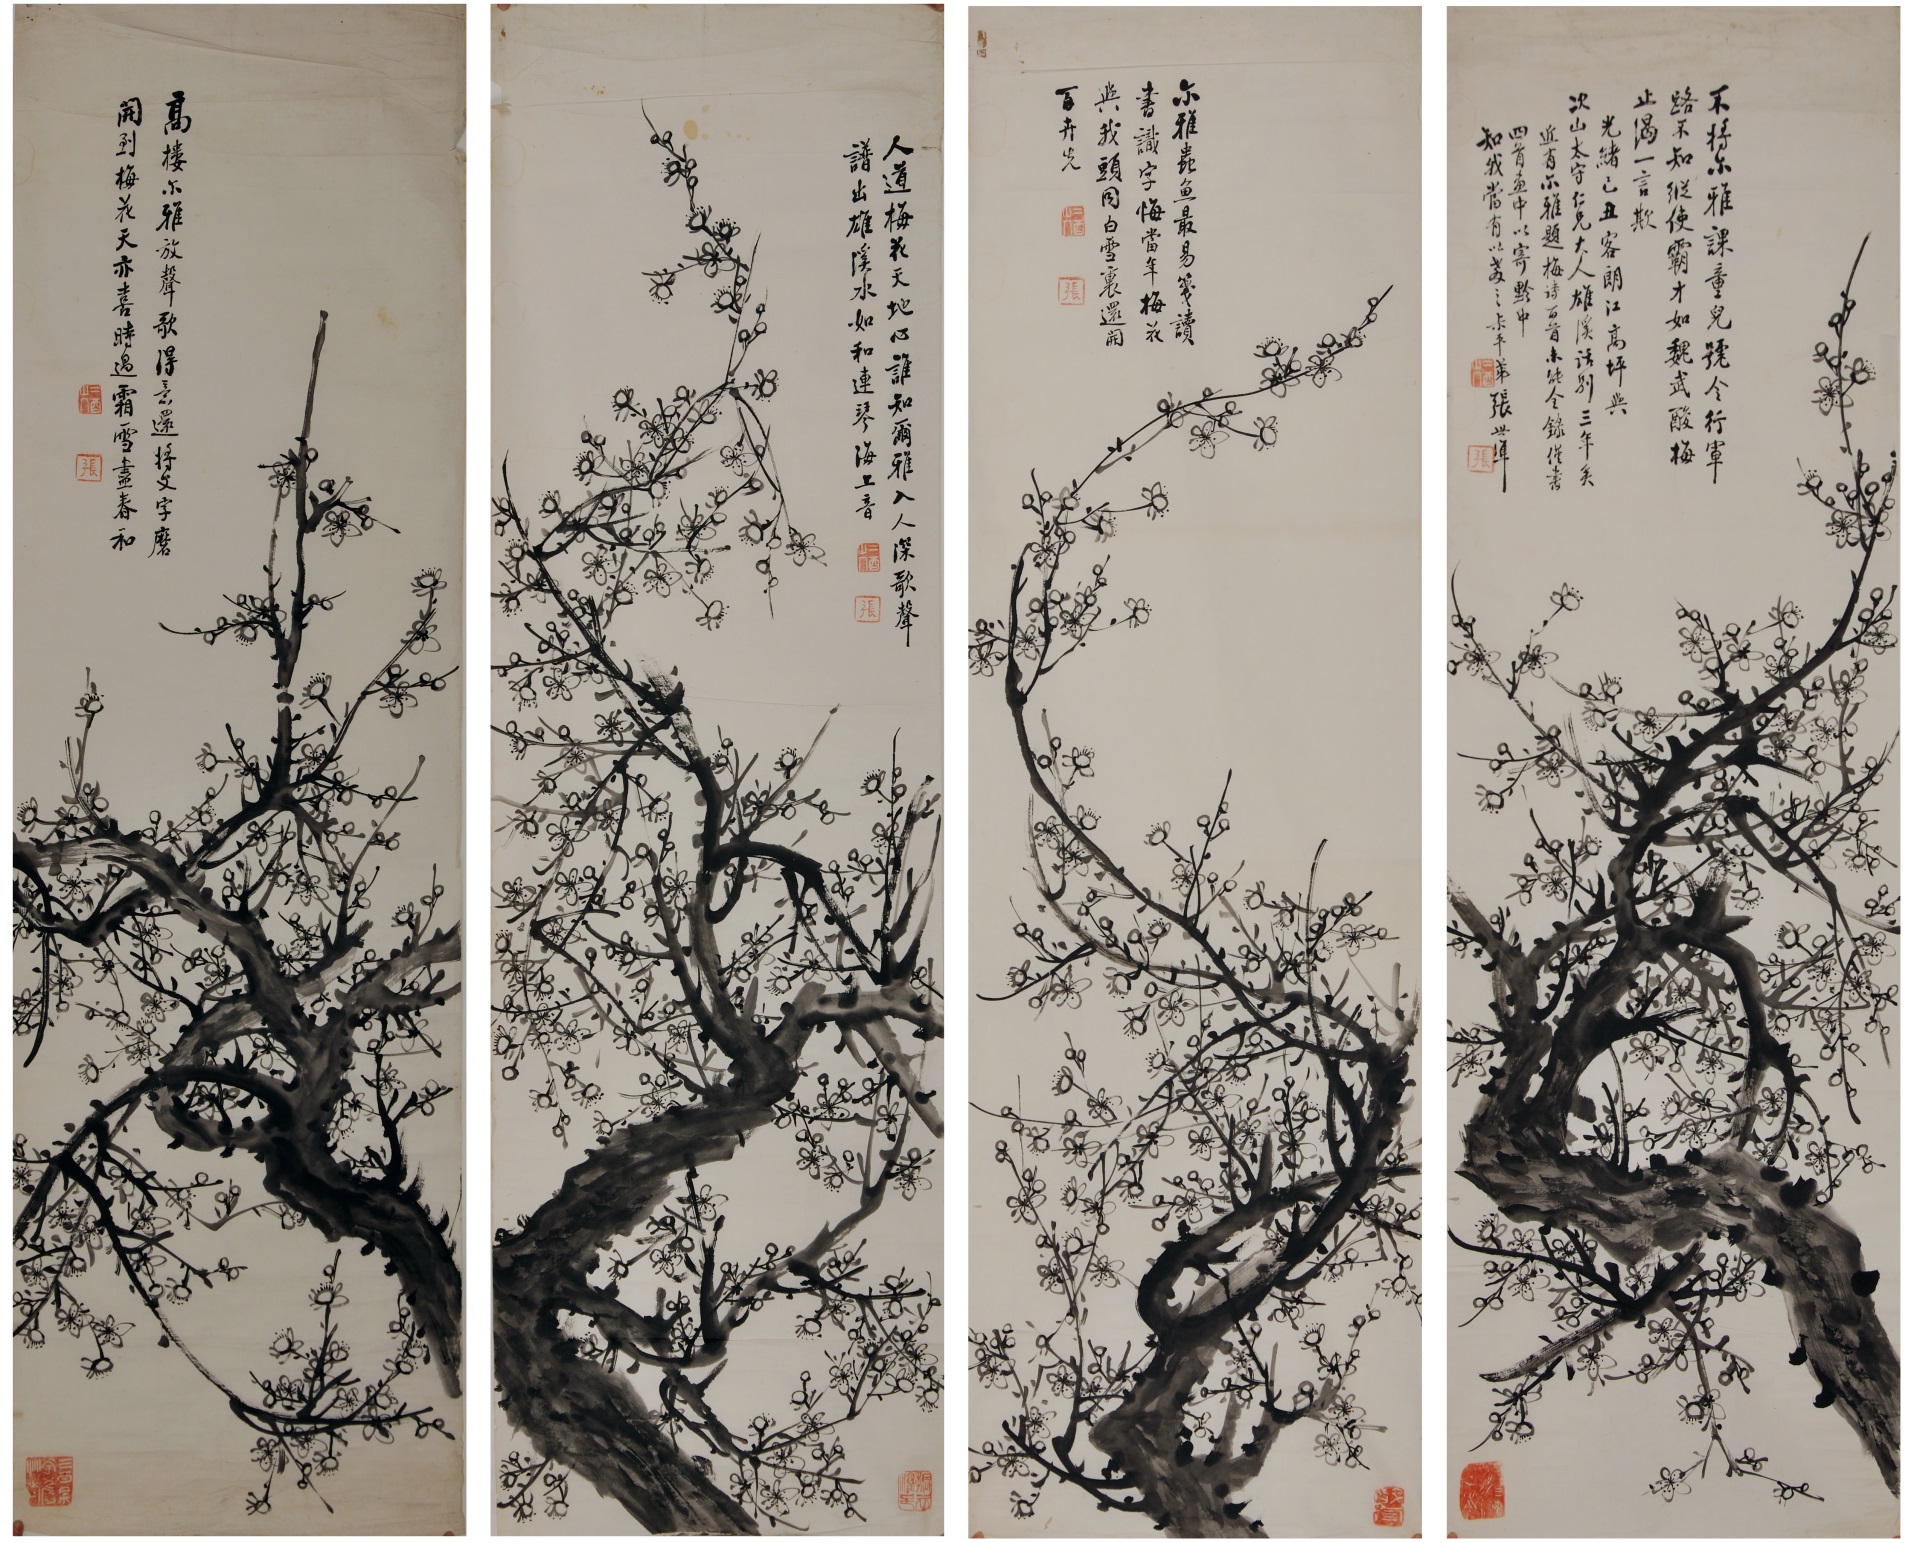 高楼尔雅放聲歌得意還將文字磨
開到梅花天亦喜時過霜雪盡春和
張
人道梅花天地心誰知爾雅入人深歌聲
譜出雄溪水如和連琴海上音
張
尔雅蟲魚最易箋讀
書識字悔當年梅花
與我頭同白雪裏還開
百卉先
張
不將尔雅課童兒號令行軍
路不知縱使霸才如魏武酸梅
止渴一言欺
光緒己丑客朗江高坪與
次山太守仁兄大人雄溪話別三年矣
近有尔雅題梅詩百首未能全錄僅書
四首畫中以寄黔中
知我當有以教之尗平弟張世準
張